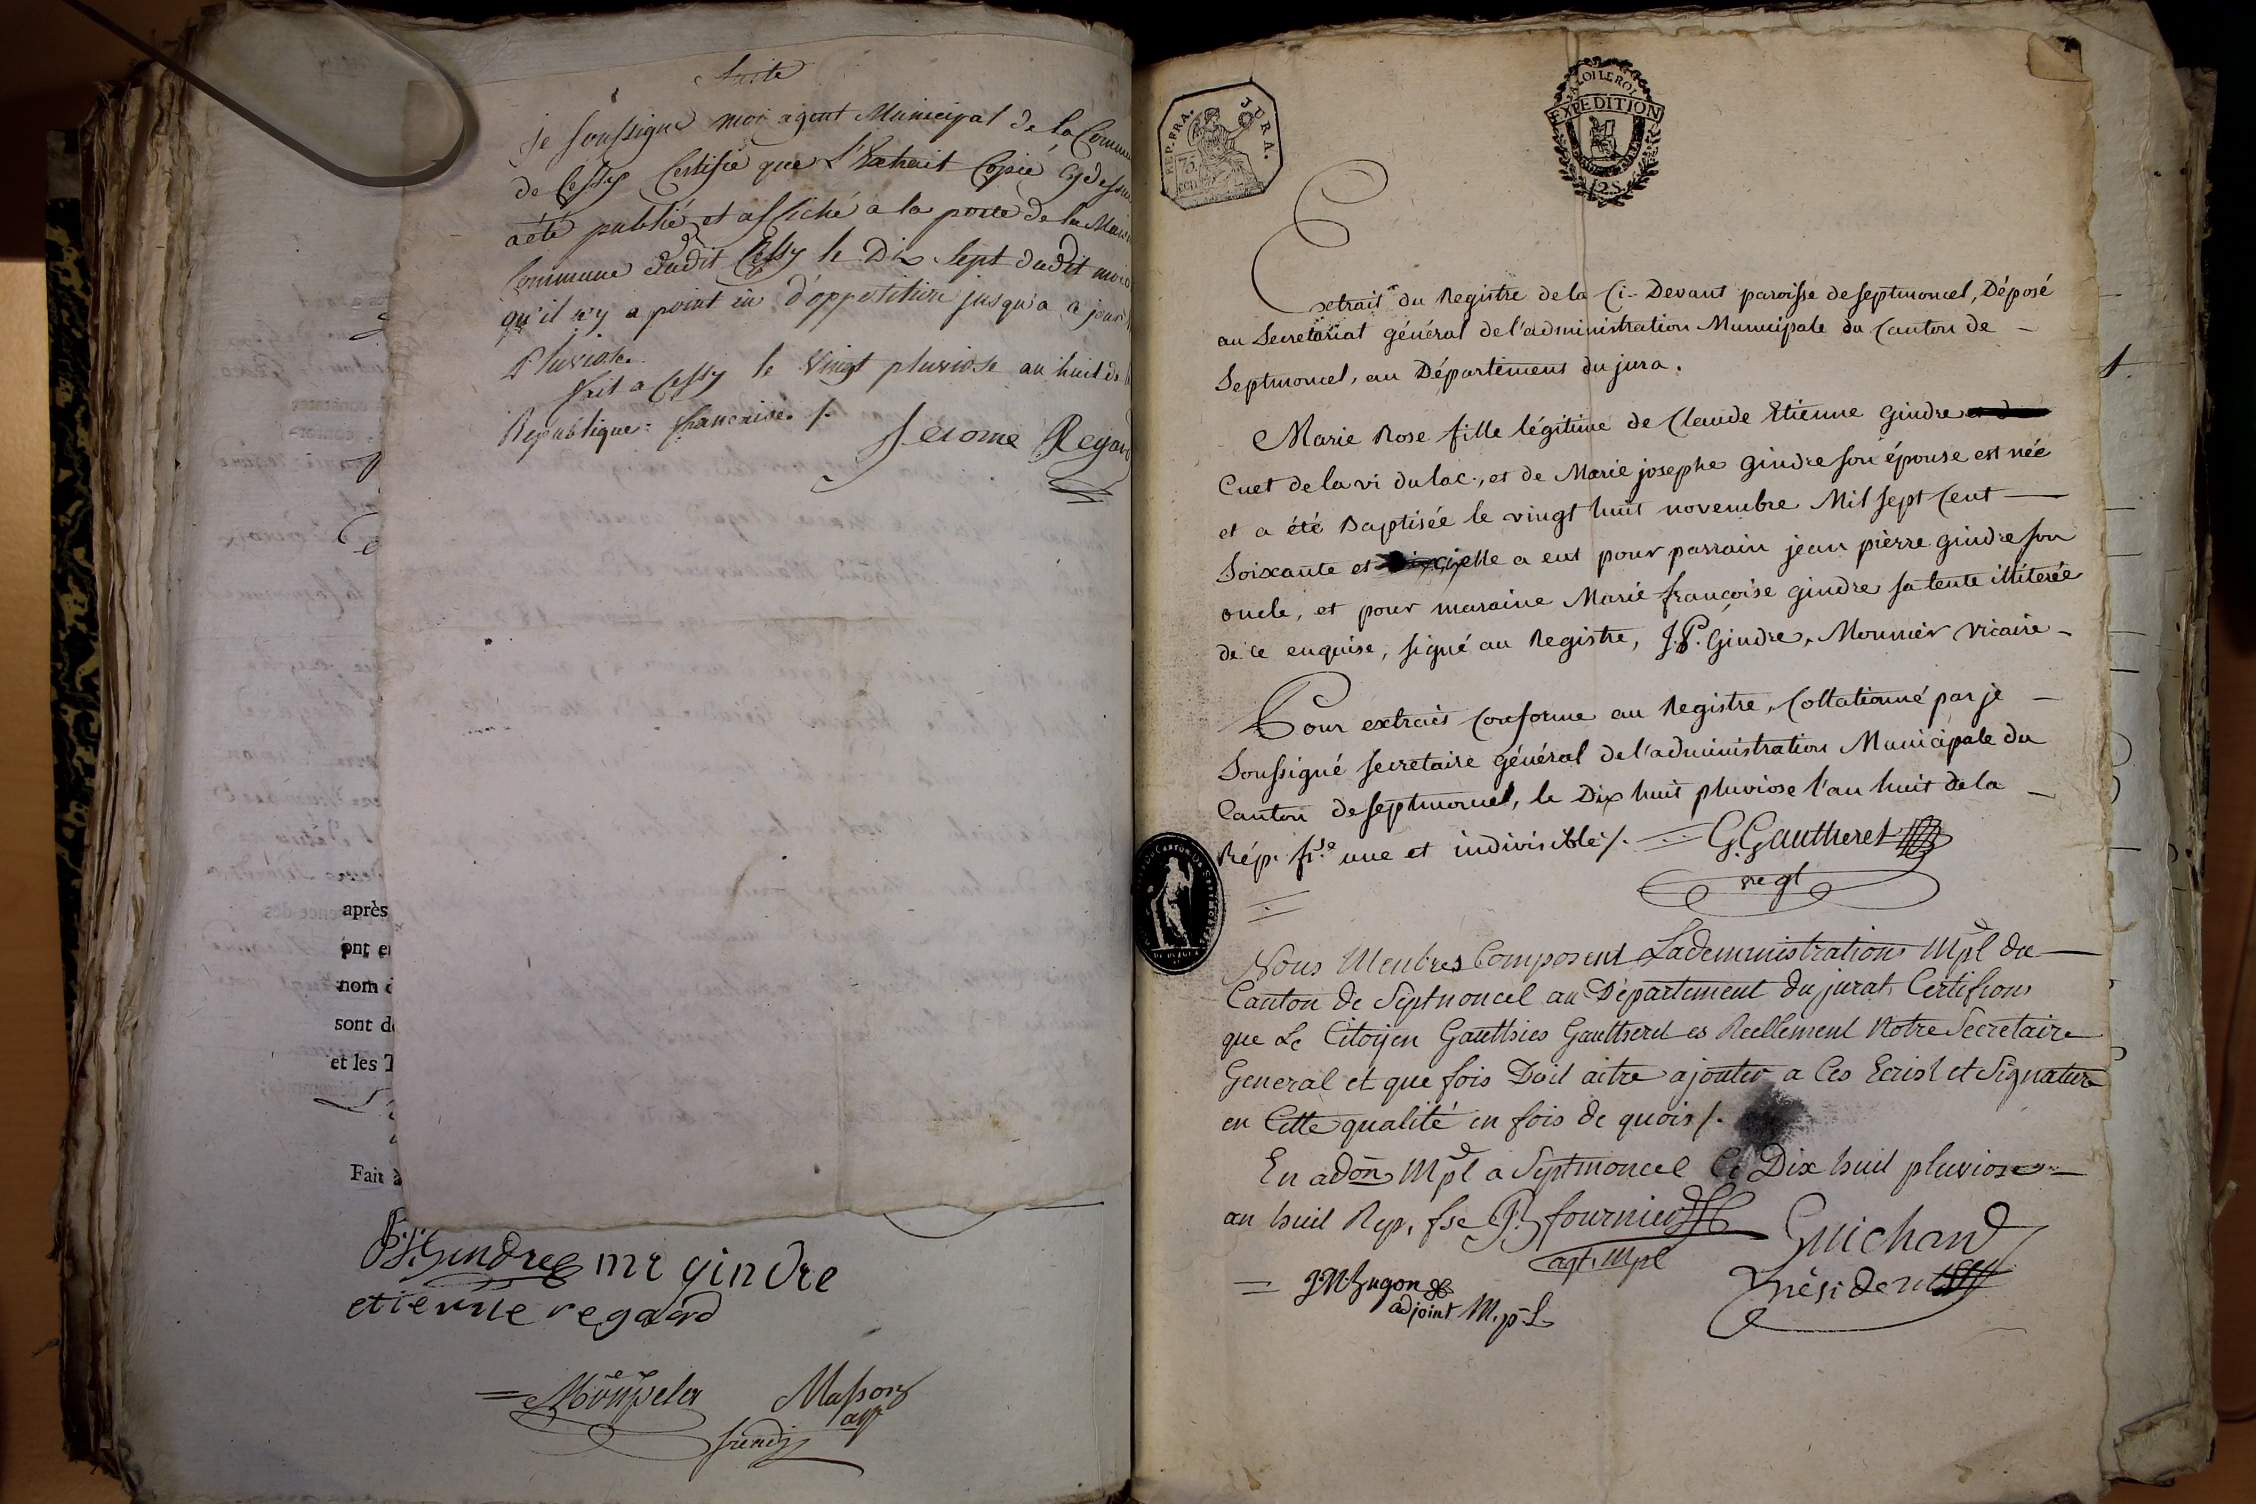 Suite
je soussigné moi agent Municipal de la Commu
de Cessy Certifie que L'Extrait Copié Cydessu
a été publié et affiché a la porte de la Mais
Commune dudit Cessy le Dix Sept dudit mois
qu'il n'y a point eu d'oppetition jusqu'a a jour
Pluviose
fait a Cessy le Vingt pluviose an huit de l
République francaise /.
Jerome Regard
après
ont e
nom d
sont d
et les T
Fait à
gindre mr gindre
etienne regard
Masson
REP. FRA. JURA.
75 cen
LA LOI LE ROI
EXPEDITION
12 S.
Extrait du Registre de la Ci-Devant paroisse de septmoncel, Déposé
au Secretariat général de l'administration Municipale du Canton de –
Septmoncel, au Département du jura.
Marie Rose fille légitime de Claude Etienne gindre
Cuet de la vi du lac, et de Marie josephe gindre son épouse est née
et a été Baptisée le vingt huit novembre Mil sept Cent –
Soixante et elle a eut pour parrain jean pierre gindre son
oncle, et pour maraine Marie françoise gindre sa tente illiterée
de ce enquise, signé au Registre, J.P. Gindre, Monnier vicaire –
Pour extrait Conforme au Registre, Collationné par je –
Soussigné secretaire général de l'administration Municipale du
Canton de septmoncel, le Dix huit pluviose l'an huit de la –
Rép. fr.se une et indivisible /. G. Gautheret
Nous Menbres Composent Ladeministration Mpl du
Canton de Septmoncel au Département du jurat, Certifions
que Le Citoyen Gautheret es Reellement Notre Secretaire
General et que fois Doit aitre ajouter a Ces Ecrist et Signature
en Cette qualité en fois de quois /.
En adon Mpl a Septmoncel Ce Dix huit pluviose
an huit Rep. fse P. fournier Guichard
agt. Mpl Président
adjoint M.pL